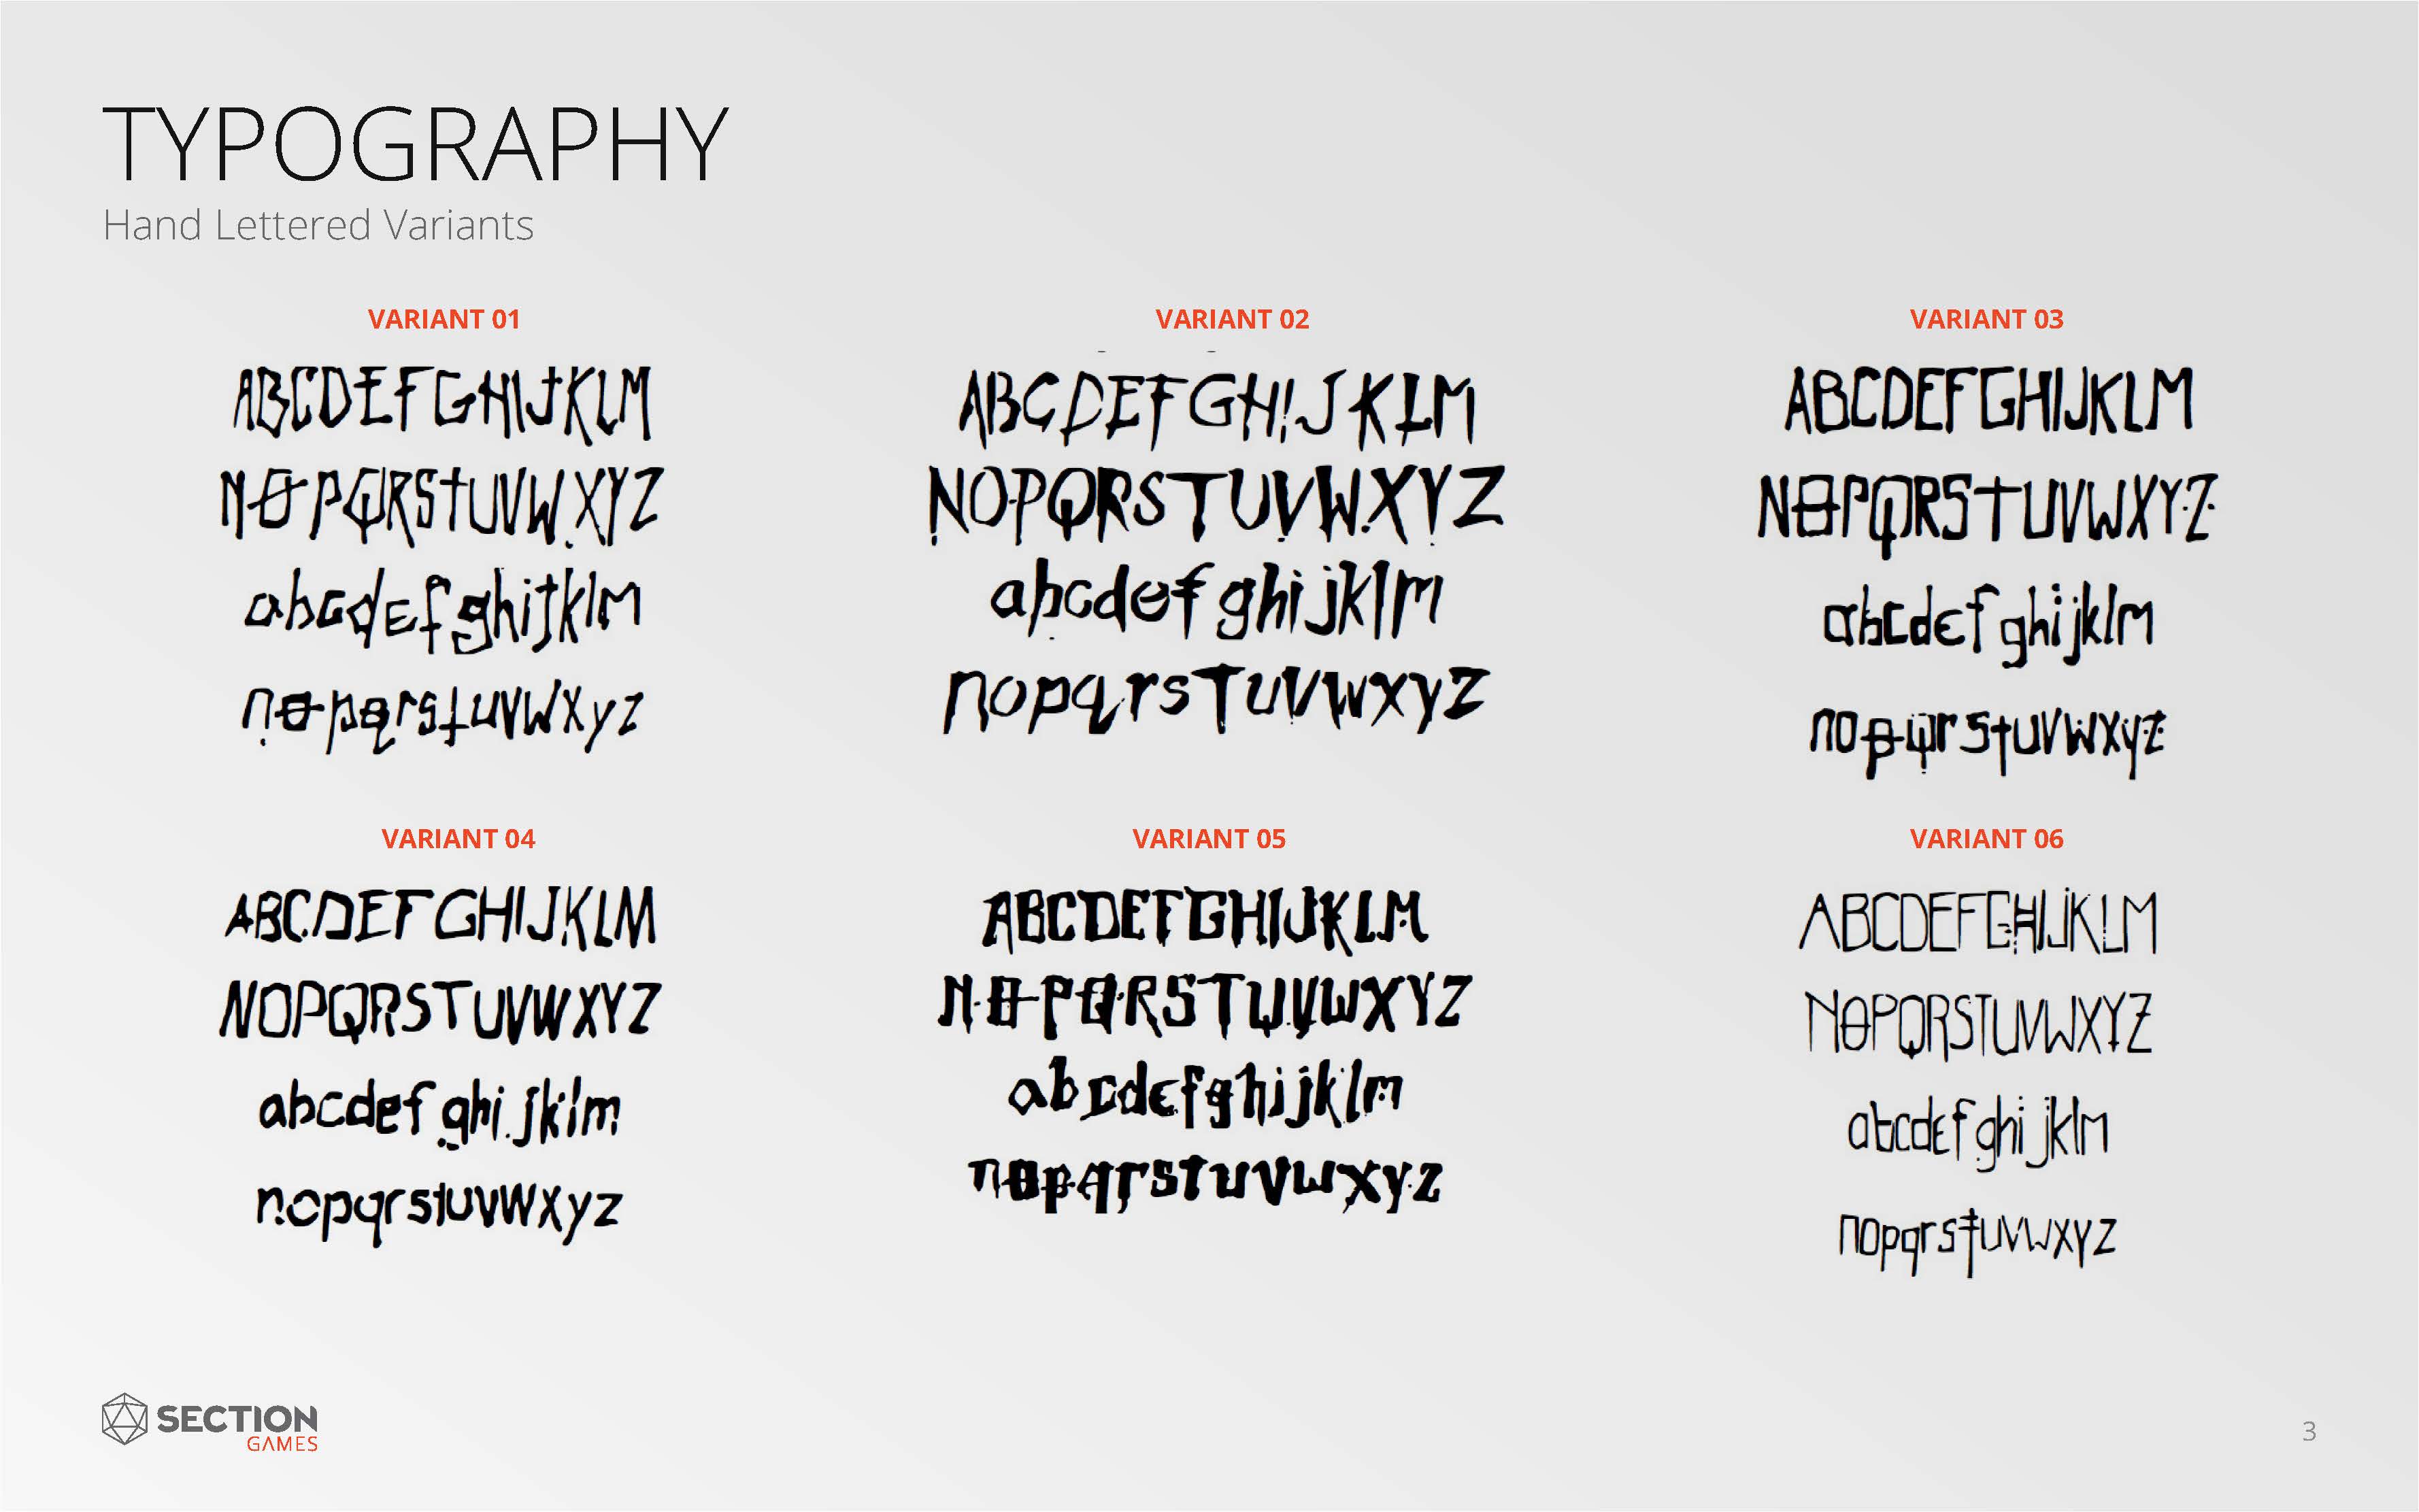 TYPOGRAPHY
Hand Lettered Variants
VARIANT 01
ABCDEFGHIJKLM
NOPQRSTUVWXYZ
abcdefghijklm
nopqrstuvwxyz
VARIANT 02
ABCDEFGHIJKLM
NOPQRSTUVWXYZ
abcdefghijklm
nopqrstuvwxyz
VARIANT 03
ABCDEFGHIJKLM
NOPQRSTUVWXYZ
abcdefghijklm
nopqrstuvwxyz
VARIANT 04
ABCDEFGHIJKLM
NOPQRSTUVWXYZ
abcdefghijklm
nopqrstuvwxyz
VARIANT 05
ABCDEFGHIJKLM
NOPQRSTUVWXYZ
abcdefghijklm
nopqrstuvwxyz
VARIANT 06
ABCDEFGHIJKLM
NOPQRSTUVWXYZ
abcdefghijklm
nopqrstuvwxyz
SECTION
GAMES
3